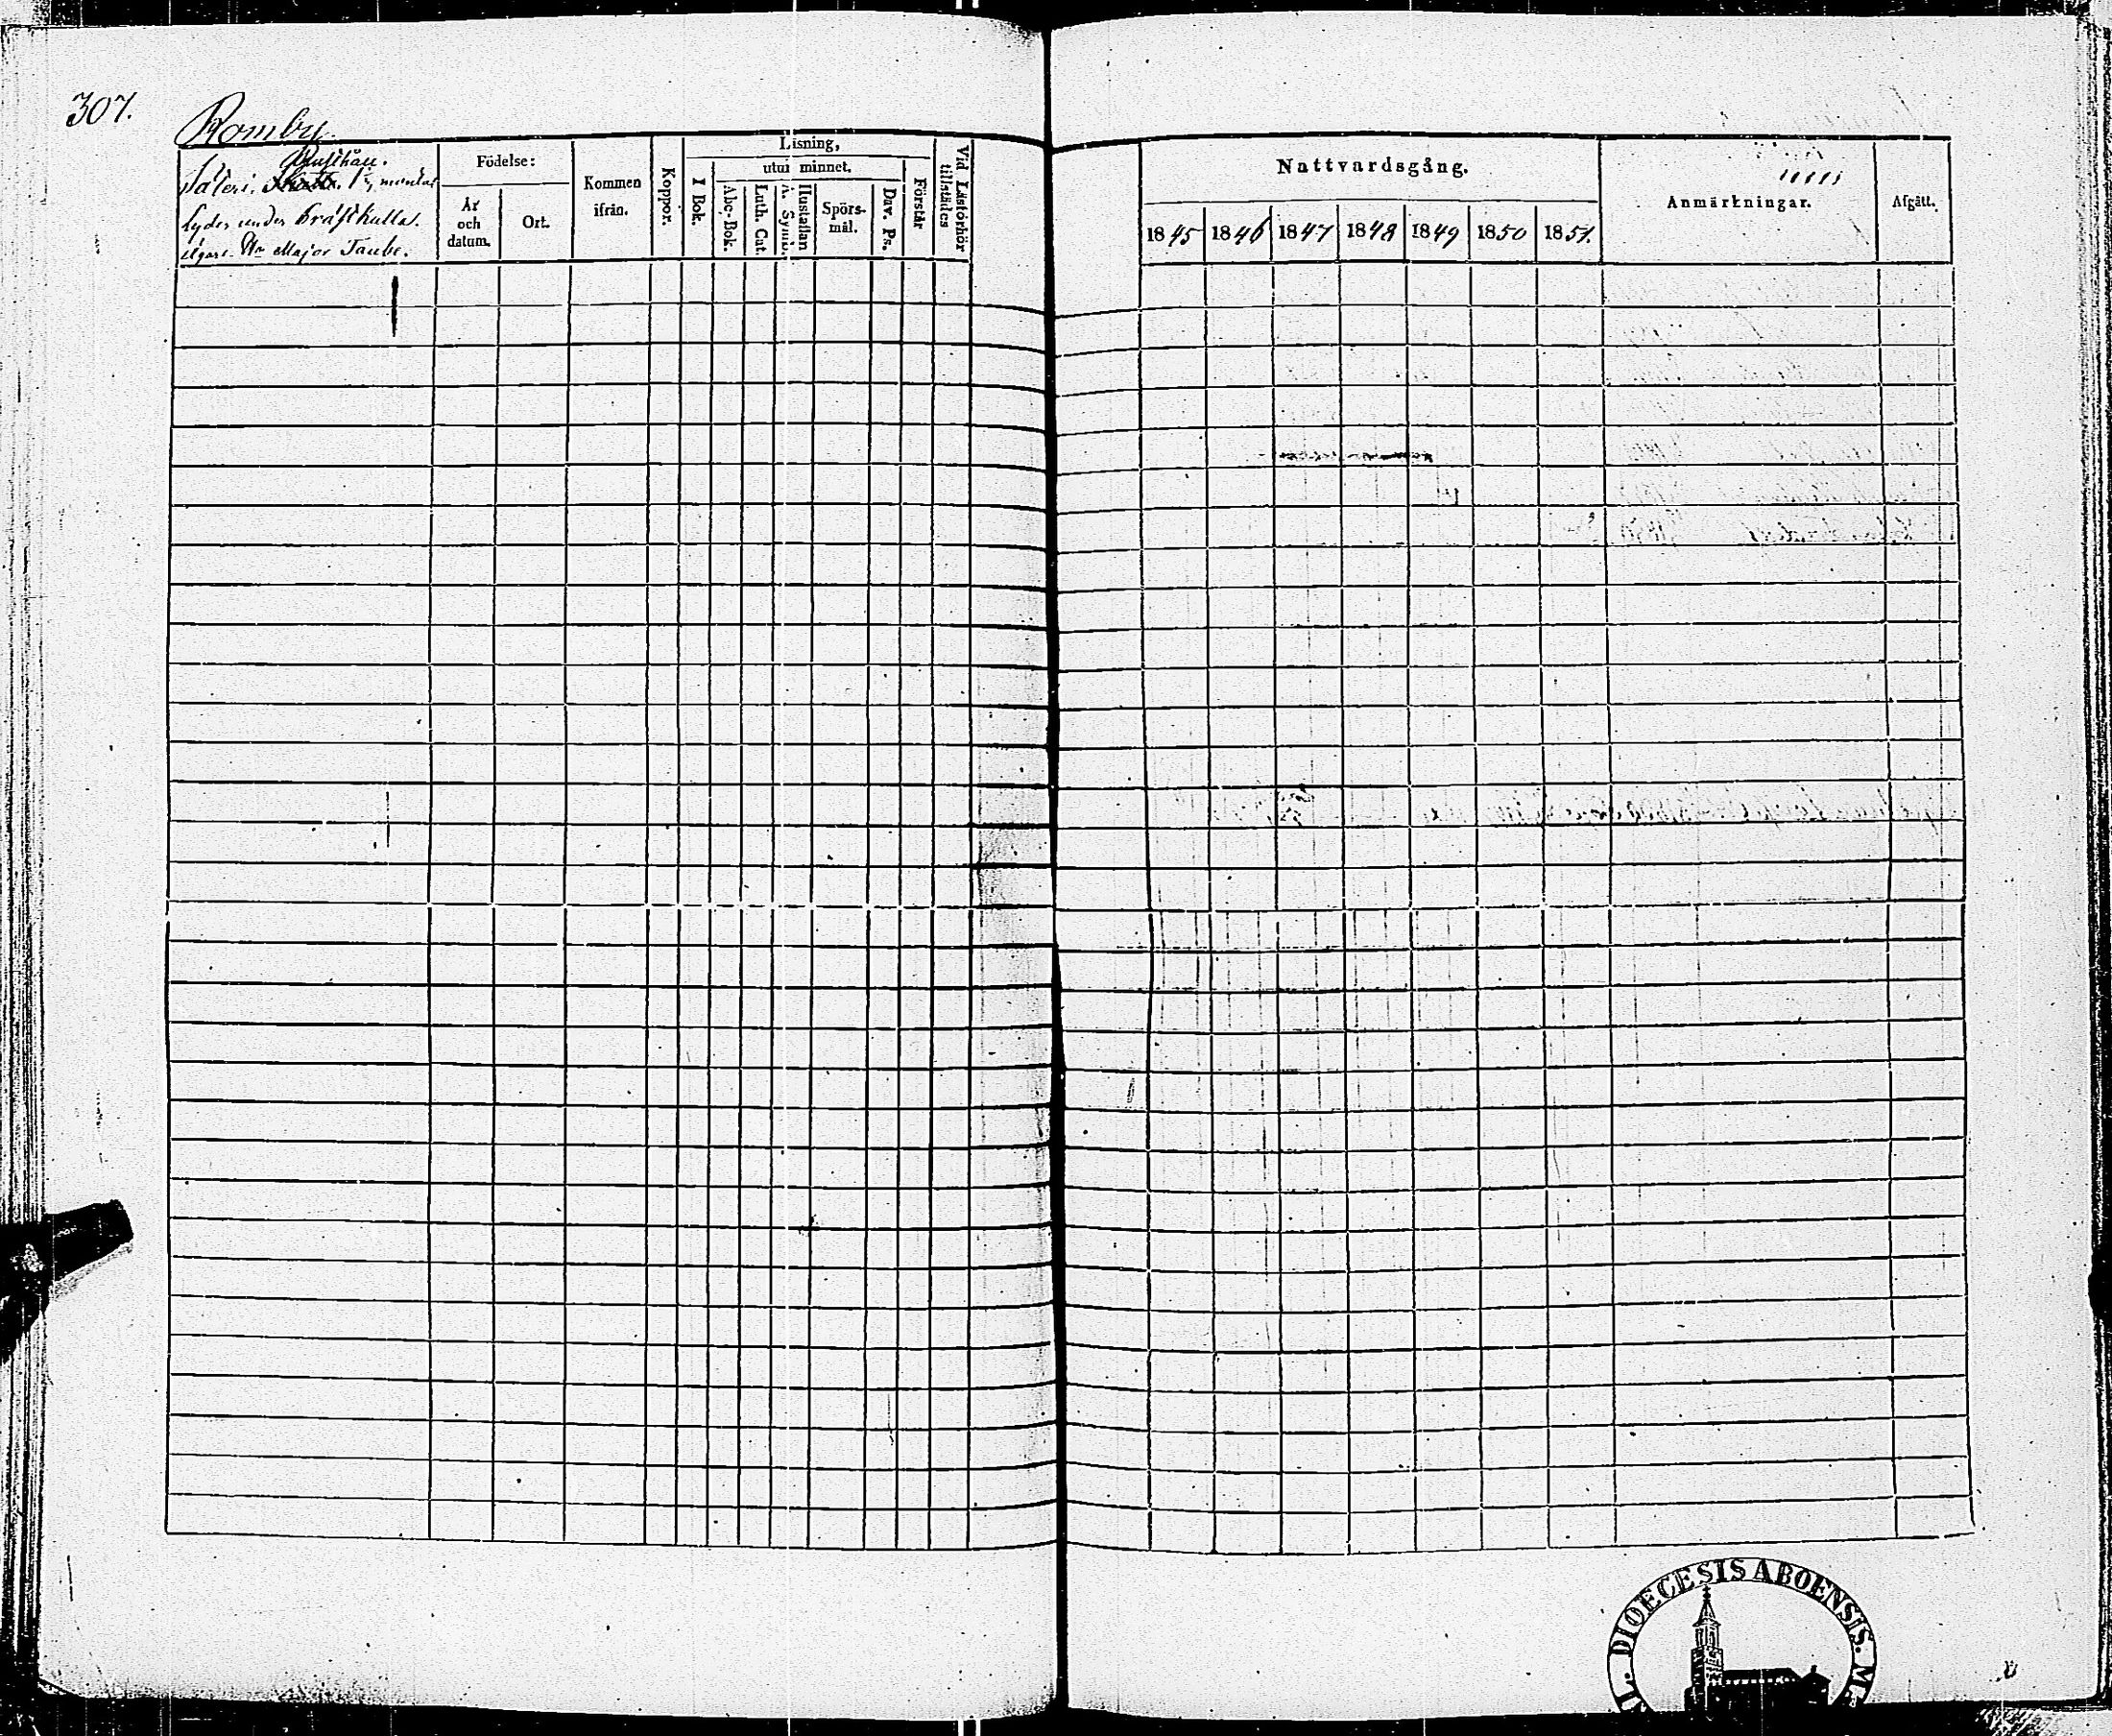 307.
Romby
Rusthåll.
Säteri Skatte. 1 1/2 mantal
lyder under Kräftkulla.
Ägare Hr Major Taube.
Födelse:
År och datum.
Ort.
Kommen ifrån.
Koppor.
Läsning,
utur minnet.
I Bok.
Abc-Bok.
Luth. Cat.
A. Symb.
Hustaflan
Spörs-mål.
Dav. Ps.
Förstår
Vid Läsförhör tillstädes
Nattvardsgång.
1845 1846 1847 1848 1849 1850 1851.
Anmärkningar.
Afgått.
DIOECESIS ABOENSIS. M.